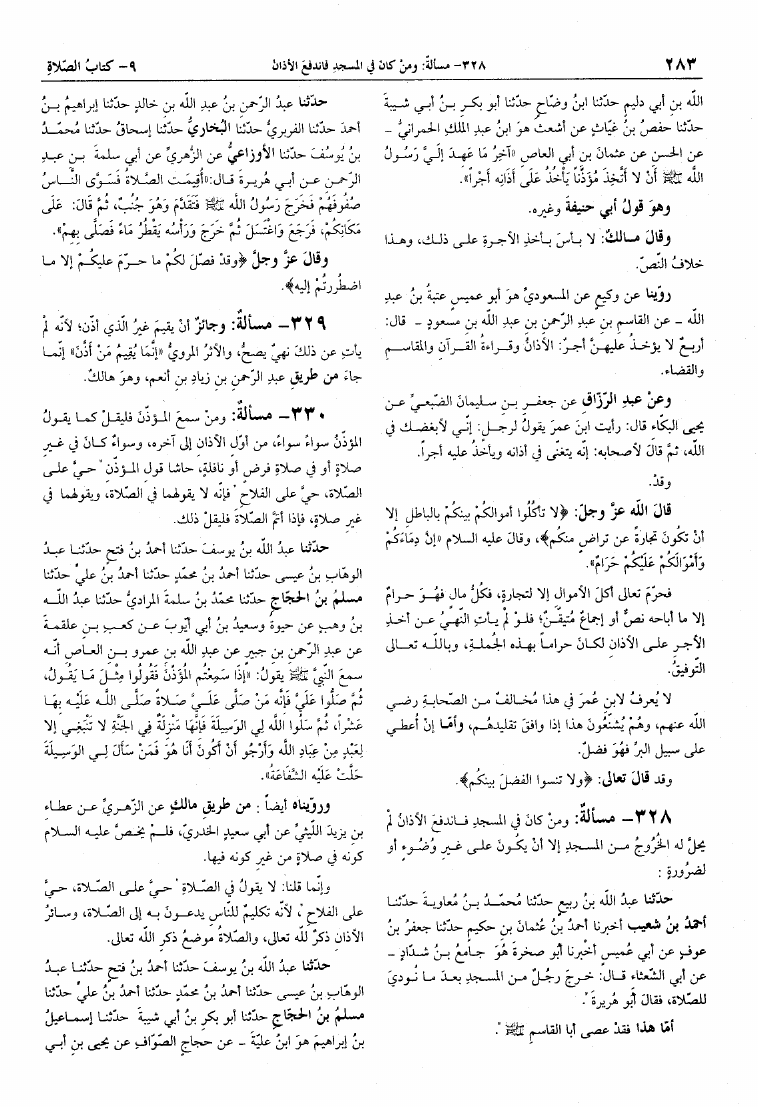 ٢٨٣
٣٢٨- مسألةٌ: ومنْ كان في المسجدِ فاندفعَ الأذانُ
٩- كتابُ الصّلاةِ
اللّه بنِ أبي دليمٍ حدّثنا ابنُ وضّاحٍ حدّثنا أبو بكرِ بنُ أبي شيبةَ
حدّثنا حفصُ بنُ غيّاثٍ عن أشعثَ هوَ ابنُ عبدِ الملكِ الحمرانيُّ -
عنِ الحسنِ عن عثمانَ بنِ أبي العاصِ «آخرُ مَا عَهِدَ إلَيَّ رَسُولُ
اللّه ﷺ أَنْ لا أَتَّخِذَ مُؤَذِّناً يَأْخُذُ عَلَى أَذَانِهِ أَجْراً».
وهوَ قولُ أبي حنيفةَ وغيرهِ.
وقالَ مالكٌ: لا بأسَ بأخذِ الأجرةِ على ذلكَ، وهذا
خلافُ النّصِّ.
روّينا عن وكيعٍ عنِ المسعوديِّ هوَ أبو عميسٍ عتبةُ بنُ عبدِ
اللّه - عنِ القاسمِ بنِ عبدِ الرّحمنِ بنِ عبدِ اللّه بنِ مسعودٍ - قالَ:
أربعٌ لا يؤخذُ عليهنَّ أجرٌ: الأذانُ وقراءةُ القرآنِ والمقاسمِ
والقضاء.
وعنْ عبدِ الرّزّاقِ عن جعفرِ بنِ سليمانَ الضّبعيِّ عن
يحيى البكّاء قالَ: رأيت ابنَ عمرَ يقولُ لرجلٍ: إنّي لأبغضك في
اللّه، ثمَّ قالَ لأصحابهِ: إنه يتغنى في أذانه ويأخذُ عليه أجراً.
وقدْ.
قالَ اللّه عزَّ وجلَّ: ﴿لا تأكُلُوا أموالكُمْ بينكُمْ بالباطلِ إلا
أنْ تكُونَ تجارةً عن تراضٍ منكُم﴾، وقالَ عليه السلام «إنَّ دِمَاءَكُمْ
وَأَمْوَالَكُمْ عَلَيْكُمْ حَرَامٌ».
فحرّمَ تعالى أكلَ الأموالِ إلا لتجارةٍ، فكُلُّ مالٍ فهُوَ حرامٌ
إلا ما أباحه نصٌّ أو إجماعٌ مُتيقّنٌ؛ فلوْ لمْ يأتِ النّهيُ عن أخذِ
الأجرِ على الأذانِ لكـانَ حراماً بهذه الجُملةِ، وباللّه تعالى
التّوفيقُ.
لا يُعرفُ لابنِ عُمرَ في هذا مُخالفٌ من الصّحابةِ رضي
اللّه عنهم، وهُمْ يُشنّعُونَ هذا إذا وافقَ تقليدهُم، وأمّا إنْ أُعطي
على سبيلِ البرِّ فهُوَ فضلٌ.
وقد قالَ تعالى: ﴿ولا تنسوا الفضلَ بينكُم﴾.
٣٢٨- مسألةٌ: ومنْ كانَ في المسجدِ فاندفعَ الأذانُ لمْ
يحلَّ له الخُرُوجُ منَ المسجدِ إلا أنْ يكُونَ على غيرِ وُضُوءٍ أو
لضرُورةٍ:
حدّثنا عبدُ اللّه بنُ ربيعٍ حدّثنا مُحمّدُ بنُ مُعاويةَ حدّثنا
أحمدُ بنُ شعيبٍ أخبرنا أحمدُ بنُ عُثمانَ بنِ حكيمٍ حدّثنا جعفرُ بنُ
عوفٍ عن أبي عُميسٍ أخبرنا أبُو صخرةَ هُوَ جامعُ بنُ شدّادٍ -
عن أبي الشّعثاء قـالَ: خرجَ رجُلٌ منَ المسجدِ بعدَ ما نُوديَ
للصّلاة، فقالَ أبُو هُريرةَ".
أمّا هذا فقدْ عصى أبا القاسمِ ﷺ ".
حدّثنا عبدُ الرّحمنِ بنُ عبدِ اللّه بنِ خالدٍ حدّثنا إبراهيمُ بنُ
أحمدَ حدّثنا الفربريُّ حدّثنا البُخاريُّ حدّثنا إسحاقُ حدّثنا مُحمّدُ
بنُ يُوسُفَ حدّثنا الأوزاعيُّ عنِ الزُّهريِّ عن أبي سلمةَ بنِ عبدِ
الرّحمنِ عن أبي هُريرةَ قـالَ: «أُقِيمَتِ الصَّلاةُ فَسَوَّى النَّاسُ
صُفُوفَهُمْ فَخَرَجَ رَسُولُ اللّه ﷺ فَتَقَدَّمَ وَهُوَ جُنُبٌ، ثُمَّ قَالَ: عَلَى
مَكَانِكُمْ، فَرَجَعَ وَاغْتَسَلَ ثُمَّ خَرَجَ وَرَأْسُه يَقْطُرُ مَاءً فَصَلَّى بِهِمْ».
وقالَ عزَّ وجلَّ ﴿وقدْ فصّلَ لكُمْ ما حرّمَ عليكُـمْ إلا مـا
اضطُررتُمْ إليه﴾.
٣٢٩- مسألةٌ: وجائزٌ أنْ يقيمَ غيرُ الّذي أذّن؛ لأنّه لمْ
يأتِ عن ذلكَ نهيٌ يصحُّ، والأثرُ المرويُّ «إنَّمَا يُقِيمُ مَنْ أَذَّنَ» إنّمـا
جاءَ من طريقِ عبدِ الرّحمنِ بنِ زيادِ بنِ أنعم، وهوَ هالكٌ.
٣٣٠- مسألةٌ: ومن سمعَ المـؤذّنَ فليقـلْ كمـا يقـولُ
المؤذّنُ سواءً سواءً، من أوّلِ الأذانِ إلى آخره، وسواءٌ كـانَ في غيرِ
صلاةٍ أو في صلاةِ فرضٍ أو نافلةٍ، حاشا قول المؤذّن "حيَّ على
الصّلاة، حيَّ على الفلاحِ" فإنّه لا يقولهما في الصّلاة، ويقولهما في
غيرِ صلاةٍ، فإذا أتمَّ الصّلاةَ فليقلْ ذلك.
حدّثنا عبدُ اللّه بنُ يوسفَ حدّثنا أحمدُ بنُ فتحٍ حدّثنـا عبدُ
الوهّابِ بنُ عيسى حدّثنا أحمدُ بنُ محمّدٍ حدّثنا أحمدُ بنُ عليٍّ حدّثنا
مسلمُ بنُ الحجّاجِ حدّثنا محمّدُ بنُ سلمةَ المراديُّ حدّثنا عبدُ اللّـه
بنُ وهبٍ عن حيوةَ وسعيدُ بنُ أبي أيّوبَ عن كعبِ بنِ علقمةَ
عن عبدِ الرّحمنِ بنِ جبيرٍ عن عبدِ اللّه بنِ عمرِو بنِ العاصِ أنّه
سمعَ النّبيَّ ﷺ يقولُ: «إذَا سَمِعْتُم المُؤَذِّنَ فَقُولُوا مِثْلَ مَا يَقُولُ،
ثُمَّ صَلُّوا عَلَيَّ فَإِنَّه مَنْ صَلَّى عَلَيَّ صَلاةً صَلَّى اللّه عَلَيْه بِهَا
عَشْراً، ثُمَّ سَلُوا اللّه لِي الوَسِيلَةَ فَإِنَّهَا مَنْزِلَةٌ فِي الجَنَّةِ لا تَنْبَغِي إلا
لِعَبْدٍ مِنْ عِبَادِ اللّه وَأَرْجُو أَنْ أَكُونَ أَنَا هُوَ فَمَنْ سَأَلَ لِي الوَسِيلَةَ
حَلَّتْ عَلَيْه الشَّفَاعَةُ».
وروّيناه أيضاً: من طريقِ مالكٍ عنِ الزّهريِّ عن عطاء
بنِ يزيدَ اللّيثيِّ عن أبي سعيدٍ الخدريِّ، فلـمْ يخـصَّ عليه السلام
كونه في صلاةٍ من غيرِ كونه فيها.
وإنّما قلنا: لا يقولُ في الصّلاةِ "حيَّ على الصّلاة، حيَّ
على الفلاحِ"، لأنّه تكليمٌ للنّاسِ يدعونَ به إلى الصّلاة، وسائرُ
الأذانِ ذكرٌ للّه تعالى، والصّلاةُ موضعُ ذكرِ اللّه تعالى.
حدّثنا عبدُ اللّه بنُ يوسفَ حدّثنا أحمدُ بنُ فتحٍ حدّثنـا عبدُ
الوهّابِ بنُ عيسى حدّثنا أحمدُ بنُ محمّدٍ حدّثنا أحمدُ بنُ عليٍّ حدّثنا
مسلمُ بنُ الحجّاجِ حدّثنا أبو بكرِ بنُ أبي شيبةَ حدّثنا إسماعيلُ
بنُ إبراهيمَ هوَ ابنُ عليّةَ - عن حجاجٍ الصّوّافِ عن يحيى بنِ أبي